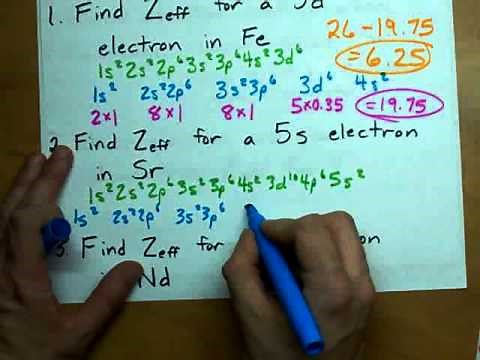 1. Find Zeff for a 3d
electron in Fe
26 - 19.75
= 6.25
1s² 2s² 2p⁶ 3s² 3p⁶ 4s² 3d⁶
1s² 2s² 2p⁶ 3s² 3p⁶ 3d⁶ 4s²
2×1 8×1 8×1 5×0.35 = 19.75
2. Find Zeff for a 5s electron
in Sr
1s² 2s² 2p⁶ 3s² 3p⁶ 4s² 3d¹⁰ 4p⁶ 5s²
1s² 2s² 2p⁶ 3s² 3p⁶
3. Find Zeff for
in Nd